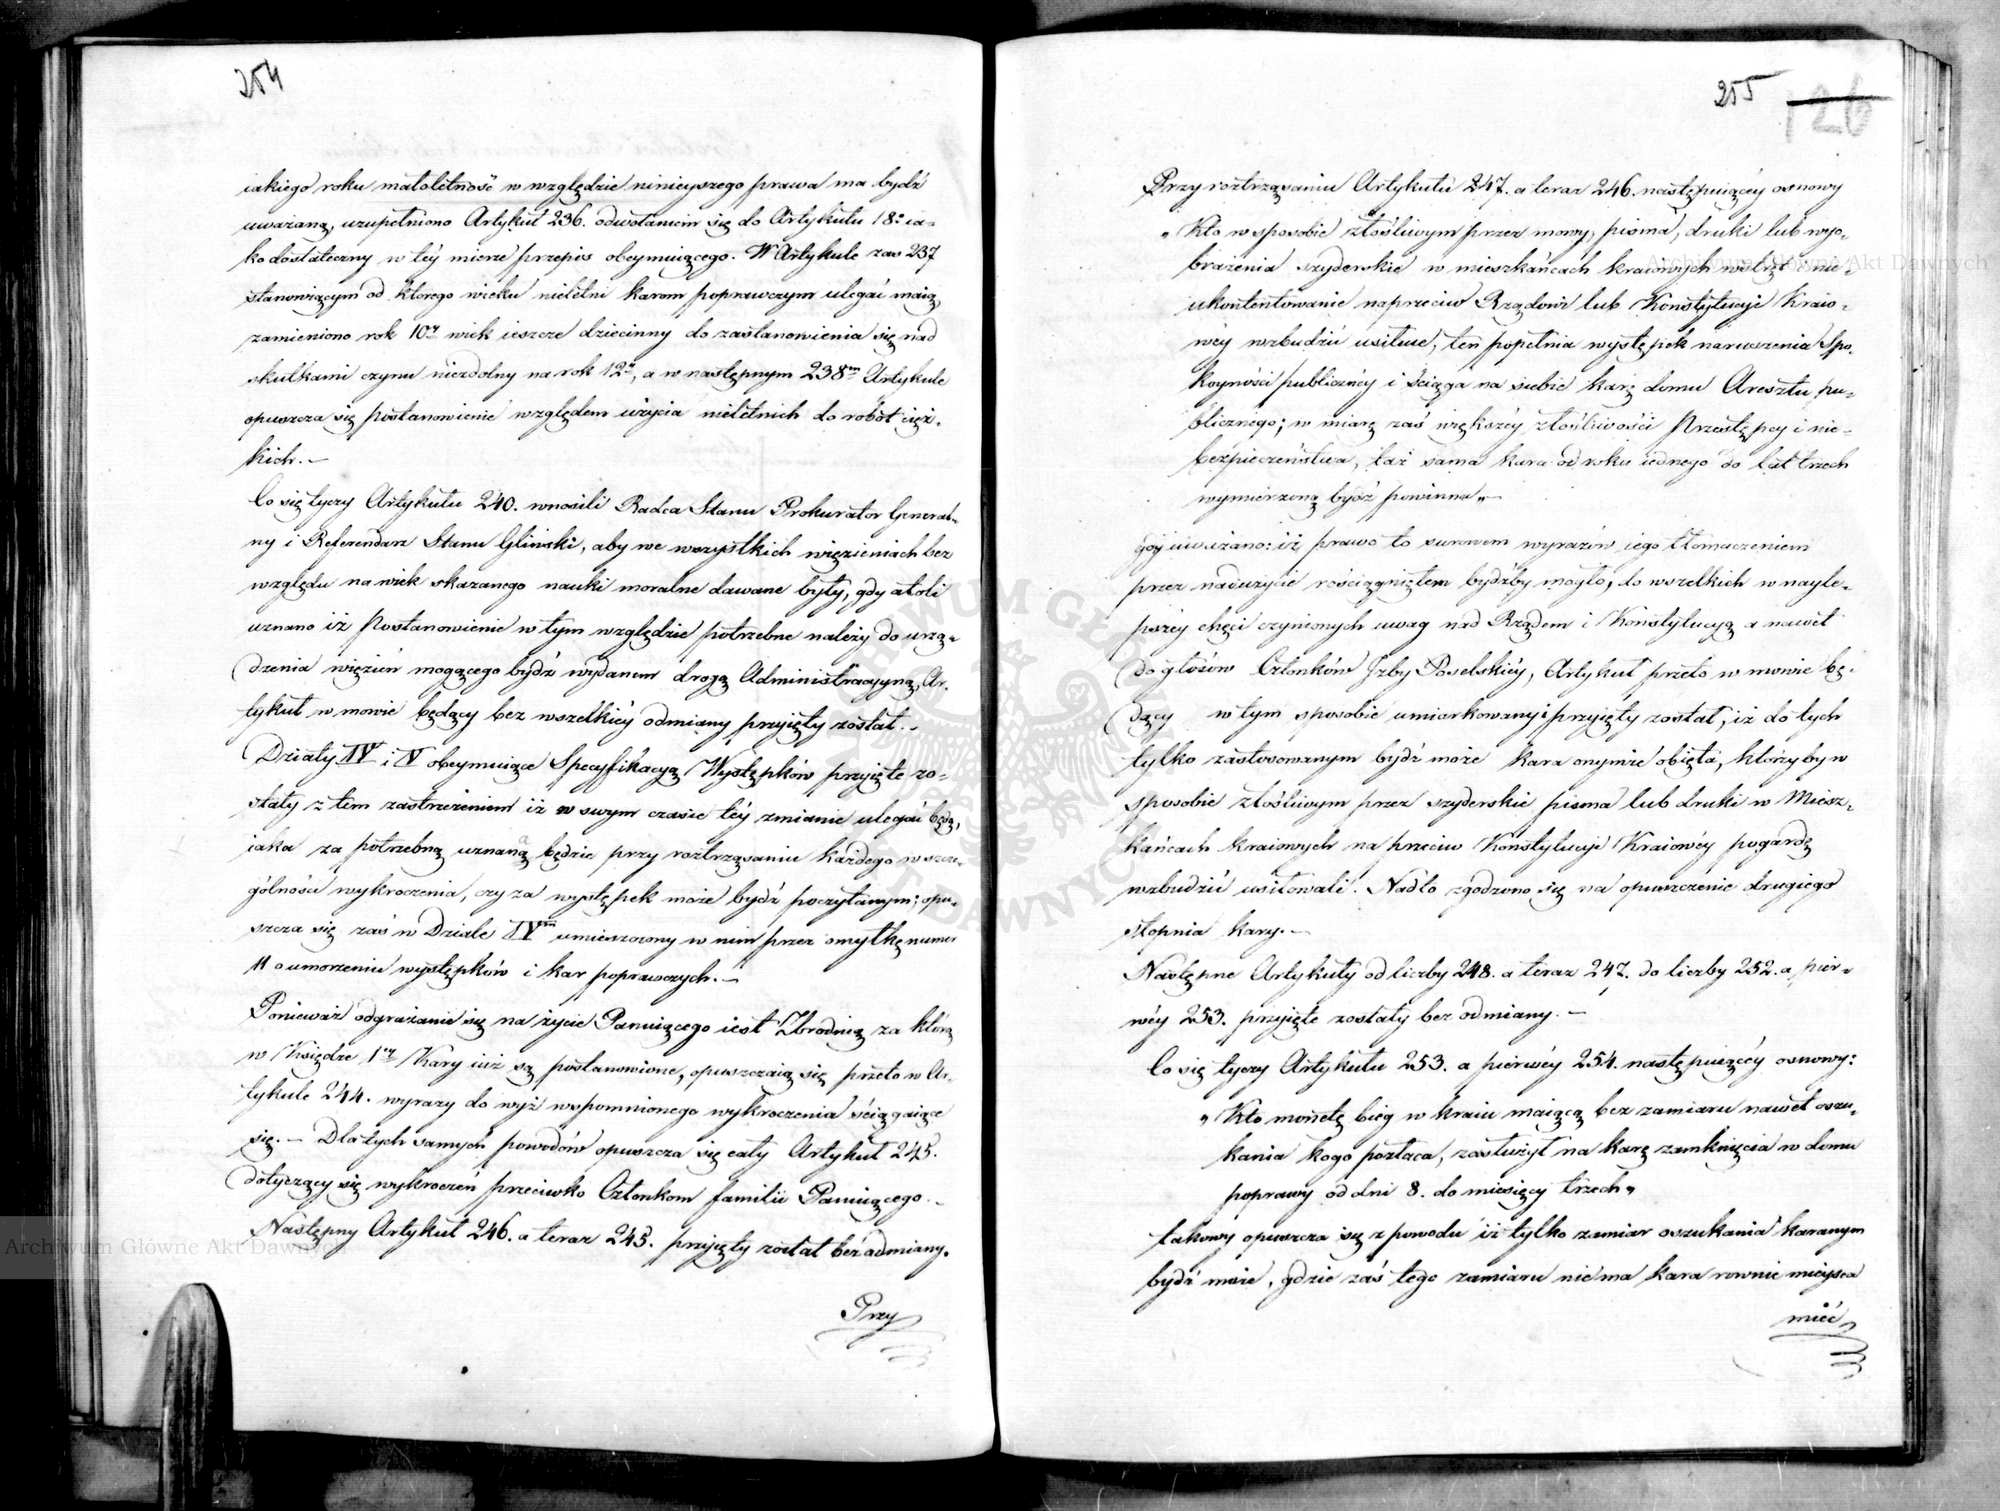 254
iakiego roku małoletność w względzie ninieyszego prawa ma bydź
uważaną, uzupełniono Artykuł 236. odwołaniem się do Artykułu 18º ia-
ko dostateczny w téy mierze przepis obeymuiącego. W Artykule zaś 237
stanowiącym od którego wieku nieletni karom poprawczym ulegać maią,
zamieniono rok 10ty wiek ieszcze dziecinny do zastanowienia się nad
skutkami czynu niezdolny na rok 12ty, a w następnym 238m Artykule
opuszcza się postanowienie względem użycia nieletnich do robót cięż-
kich. –
Co się tyczy Artykułu 240. wnosili Radca Stanu Prokurator General-
ny i Referendarz Stanu Gliński, aby we wszystkich więzieniach bez
względu na wiek skazanego nauki moralne dawane były, gdy atoli
uznano iż Postanowienie w tym względzie potrzebne należy do urzą-
dzenia więzień mogącego bydź wydanem drogą Administracyyną, Ar-
tykuł w mowie będący bez wszelkiéy odmiany przyięty został. –
Działy IV i V obeymuiące Specyfikacyą Występków przyięte zo-
stały z tem zastrzeżeniem iż w swym czasie téy zmianie ulegać będą,
iaka za potrzebną uznaną będzie przy roztrząsaniu każdego w szcze-
gólności wykroczenia, czy za występek może bydź poczytanym; opu-
szcza się zaś w Dziale IVm umieszczony w nim przez omyłkę numer
11 o umorzeniu występków i kar poprawczych. –
Ponieważ odgrażanie się na życie Panuiącego iest Zbrodnią za którą
w Księdze 1éy Kary iuż są postanowione, opuszczaią się przeto w Ar-
tykule 244. wyrazy do wyż wspomnionego wykroczenia ściągaiące
się. – Dla tych samych powodów opuszcza się cały Artykuł 245.
dotyczący się wykroczeń przeciwko Członkom familii Panuiącego. –
Następny Artykuł 246. a teraz 245. przyięty został bez odmiany.
Przy
255
126
Przy roztrząsaniu Artykułu 247. a teraz 246. następuiącéy osnowy
„Kto w sposobie złośliwym przez mowy, pisma, druki lub wyo-
brażenia szyderskie w mieszkańcach kraiowych wstręt i nie-
ukontentowanie naprzeciw Rządowi lub Konstytucyi Kraio-
wéy wzbudzić usiłuie, ten popełnia występek naruszenia Spo-
koyności publicznéy i ściąga na siebie karę domu Aresztu pu-
blicznego; w miarę zaś większéy złośliwości Przestępcy i nie-
bezpieczeństwa, taż sama kara od roku iednego do lat trzech
wymierzoną bydź powinna„ –
gdy uważano: iż prawo to surowem wyrazów iego tłomaczeniem
przez nadużycie rościągniętem bydźby mogło, do wszelkich w nayle-
pszéy chęci czynionych uwag nad Rządem i Konstytucyą a nawet
do głosów Członków Izby Poselskiéy, Artykuł przeto w mowie bę-
dący w tym sposobie umiarkowany i przyięty został, iż do tych
tylko zastosowanym bydź może kara onymże obięta, którzyby w
sposobie złośliwym przez szyderskie pisma lub druki w Miesz-
kańcach kraiowych na przeciw Konstytucyi Kraiowéy pogardę
wzbudzić usiłowali. Nadto zgodzono się na opuszczenie drugiego
stopnia kary. –
Następne Artykuły od liczby 248. a teraz 247. do liczby 252. a pier-
wéy 253. przyięte zostały bez odmiany. –
Co się tyczy Artykułu 253. a pierwéy 254. następuiącéy osnowy:
„Kto monetę bieg w kraiu maiącą bez zamiaru nawet oszu-
kania kogo pozłaca, zasłużył na karę zamknięcia w domu
poprawy od dni 8. do miesięcy trzech„
takowy opuszcza się z powodu iż tylko zamiar oszukania karanym
bydź może, gdzie zaś tego zamiaru nie ma kara rownie mieysca
mieć
Archiwum Główne Akt Dawnych
Archiwum Główne Akt Dawnych